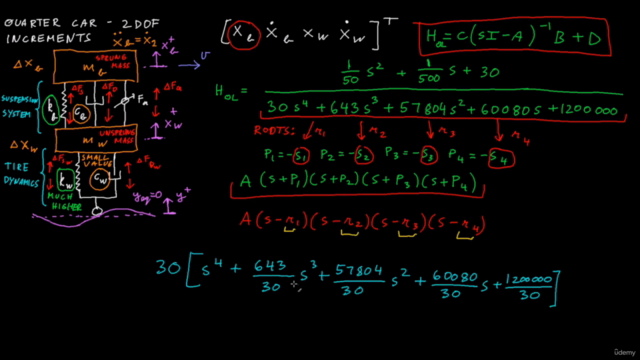 QUARTER CAR - 2DOF
INCREMENTS
Ẋ_b = Ẋ_2
X_b^+
v
ΔX_b
SPRUNG MASS
m_b
SUSPENSION SYSTEM
ΔF_D
ΔF_a
k_b
C_b
F_a
+
X_W
UNSPRUNG MASS
m_W
ΔX_W
TIRE DYNAMICS
SMALL VALUE
k_W
C_W
ΔF_DW
MUCH HIGHER
y_eq=0
y^+
[X_b Ẋ_b X_W Ẋ_W]^T
H_OL = C(SI-A)^-1 B + D
H_OL =
1/50 s^2 + 1/500 s + 30
30s^4 + 643s^3 + 57804s^2 + 60080s + 1200000
ROOTS: r_1 r_2 r_3 r_4
P_1=-S_1 P_2=-S_2 P_3=-S_3 P_4=-S_4
A(s+P_1)(s+P_2)(s+P_3)(s+P_4)
A(s-r_1)(s-r_2)(s-r_3)(s-r_4)
30[s^4 + 643/30 s^3 + 57804/30 s^2 + 60080/30 s + 1200000/30]
ûdemy